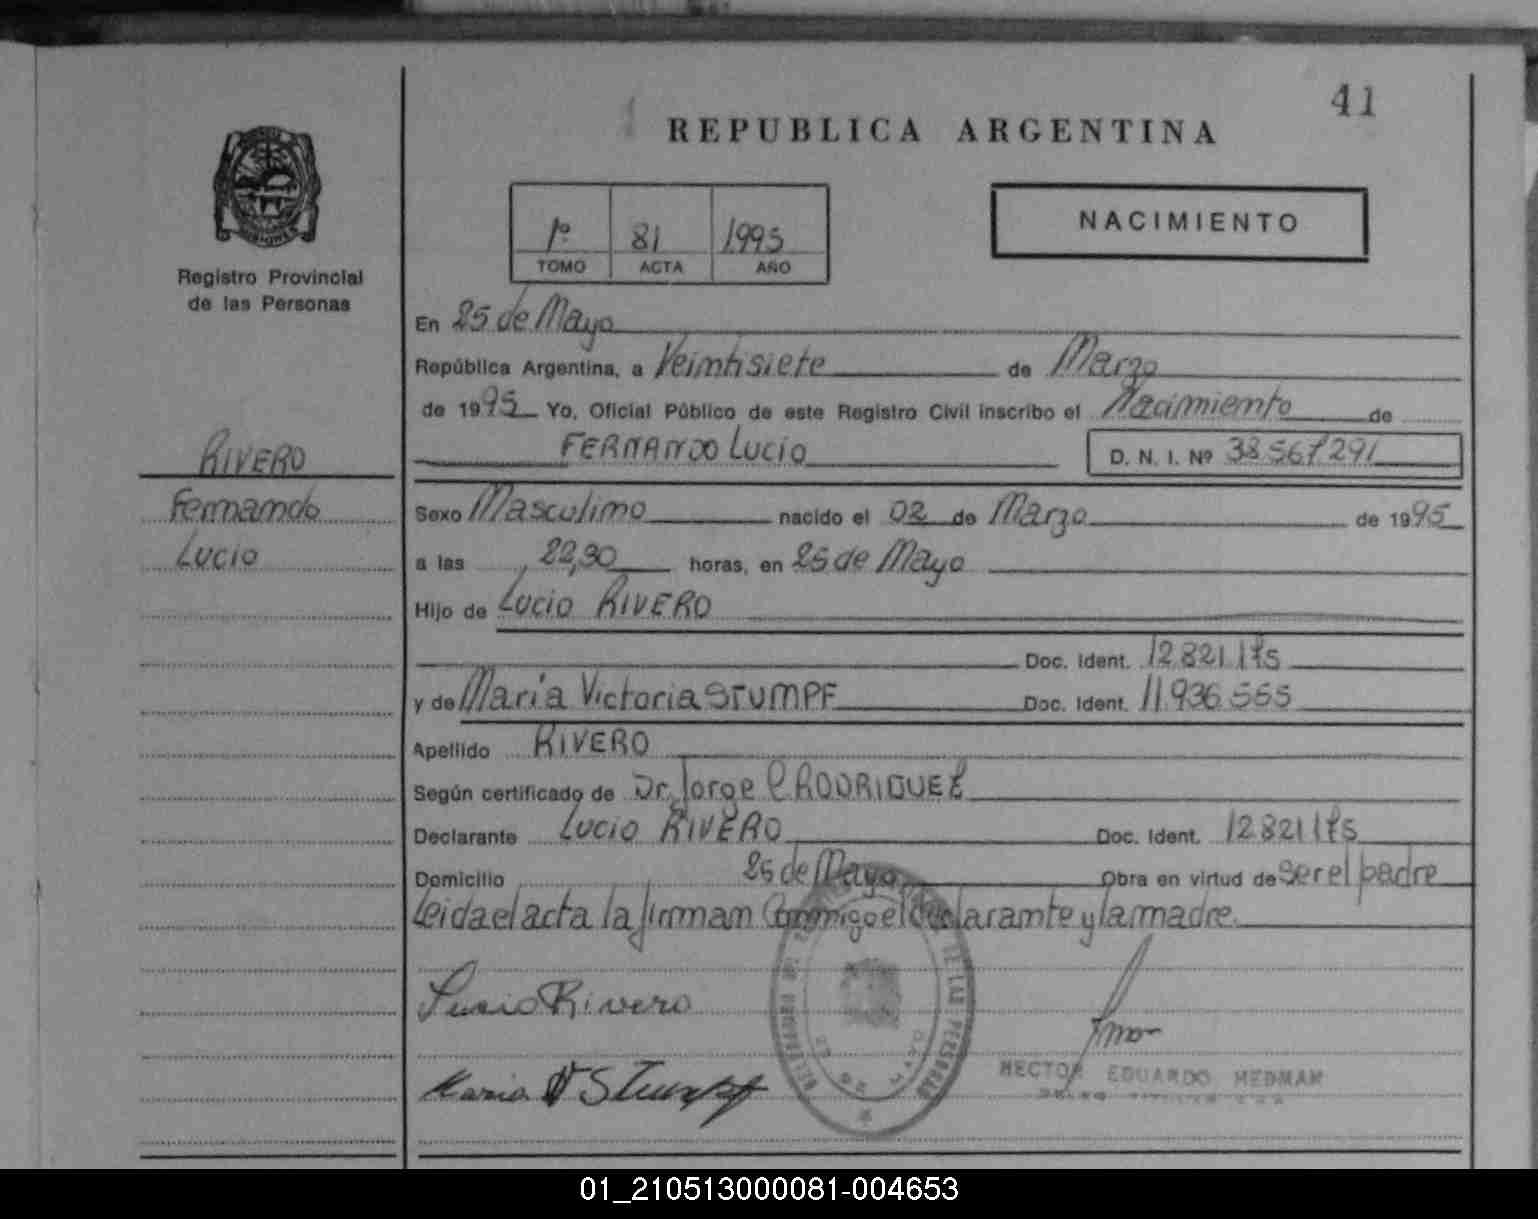 41
REPUBLICA ARGENTINA
MISIONES
Registro Provincial
de las Personas
1º 81 1995
TOMO ACTA AÑO
NACIMIENTO
En 25 de Mayo
República Argentina, a Veintisiete de Marzo
de 1995 Yo, Oficial Público de este Registro Civil inscribo el Nacimiento de
FERNANDO Lucio D. N. I. Nº 38567291
RIVERO
Fernando
Lucio
Sexo Masculino nacido el 02 de Marzo de 1995
a las 22,30 horas, en 25 de Mayo
Hijo de Lucio RIVERO
Doc. Ident. 12.821.175
y de María Victoria STUMPF Doc. Ident. 11.936.555
Apellido RIVERO
Según certificado de Dr. Jorge C RODRIGUEZ
Declarante Lucio RIVERO Doc. Ident. 12821175
Domicilio 25 de Mayo Obra en virtud de Ser el padre
Leida el acta la firman Conmigo el declarante y la madre.
Lucio Rivero
Maria V Stumpf
DE LAS PERSONAS
25 DE MAYO
HECTOR EDUARDO HEDMAN
01_210513000081-004653